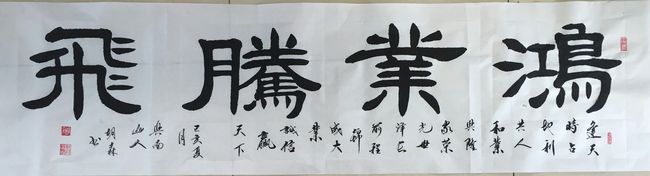 鴻業騰飛
逢天
時占
地利
共人
和業
興隆
家榮
光世
澤長
前程
錦
成大
業
誠信
贏
天下
己亥夏
月
南
山人
胡森
书